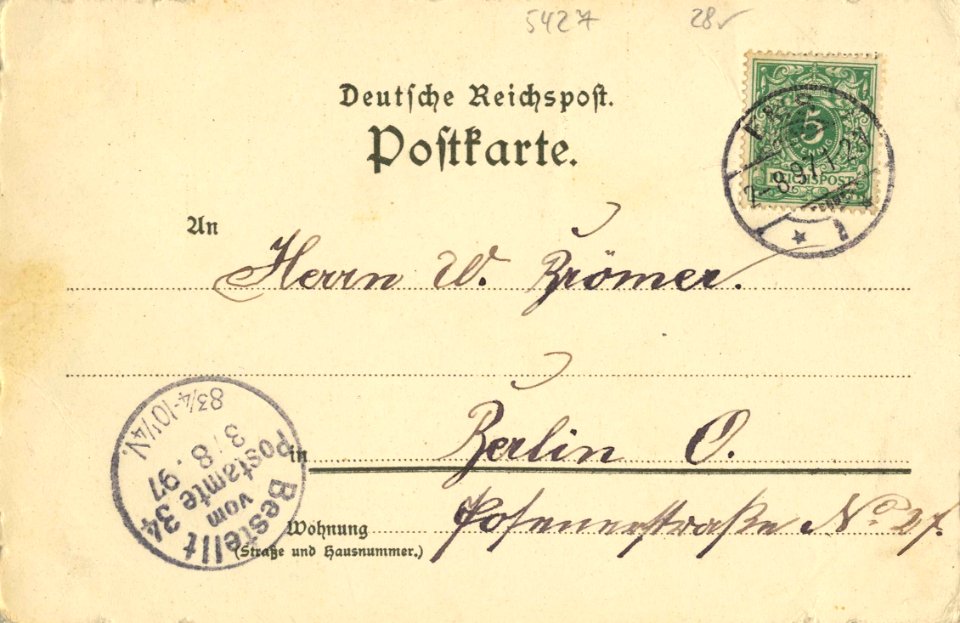 5427 28
Deutsche Reichspost.
Postkarte.
5
PFENNIG
REICHSPOST
8.97. 1-2N
An
Herrn W. Brömer.
in Berlin O.
Wohnung Posenerstraße No 27.
(Straße und Hausnummer.)
Bestellt
vom
Postamte 34
3/8.97
8¾-10¼V.